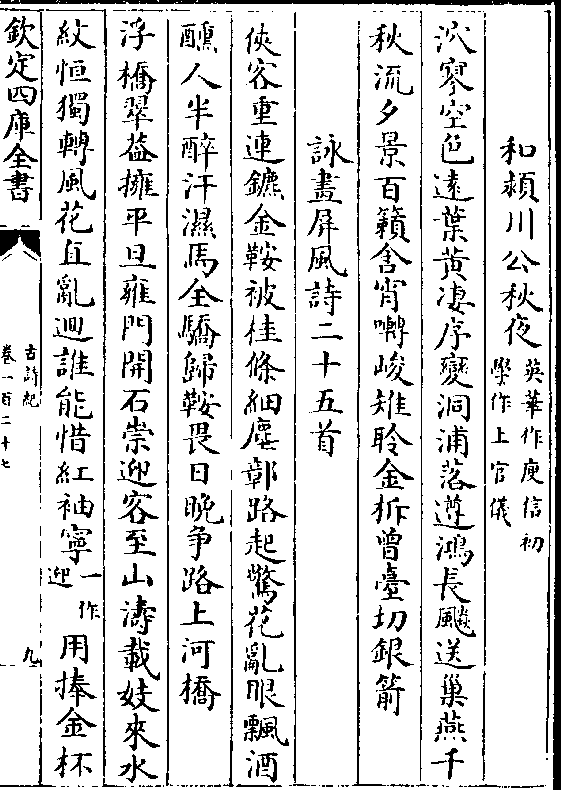 和潁川公秋夜
英華作庾信初
學作上官儀
泬寥空色遠葉黃凄序變洞浦落遵鴻長飈送巢燕千
秋流夕景百籟含宵囀峻雉聆金柝曾臺切銀箭
詠畫屏風詩二十五首
俠客重連鑣金鞍被桂條細塵鄣路起驚花亂眼飄酒
醺人半醉汗濕馬全驕歸鞍畏日晚争路上河橋
浮橋翠葢擁平旦雍門開石崇迎客至山濤載妓來水
紋恒獨轉風花直亂迴誰能惜紅袖寧一作迎用捧金杯
欽定四庫全書
古詩紀
卷一百二十七
九